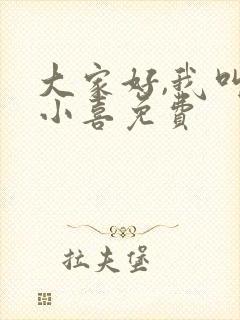 大家好,我叫
小喜免费
拉夫堡